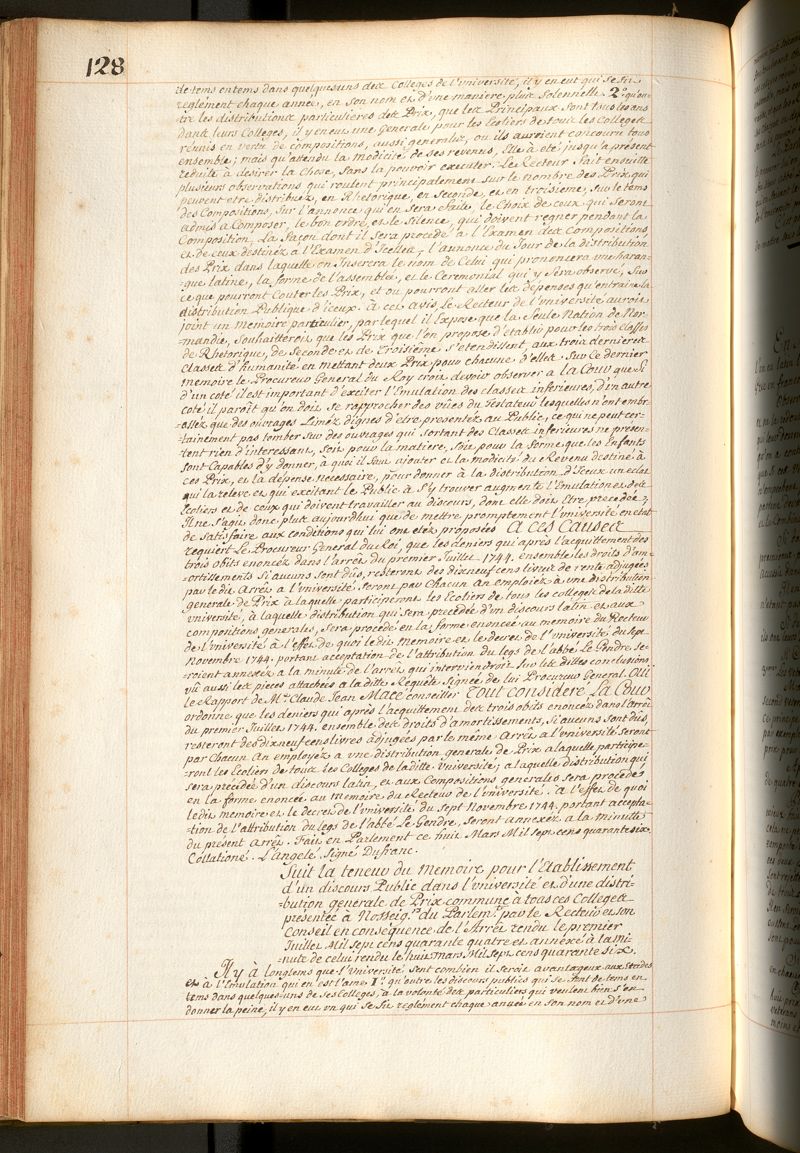 128
de tems en tems dans quelques uns des Colleges de l'université, il y en eut qui se fit
reglement chaque année, en son nom et d'une maniere plus solennelle 2.° qu'ou-
tre les distributions particulieres des Prix, que les Principaux sont tous les ans
dans leurs Colleges, il y en eut une Generale pour les Ecoliers de tous les Colleges
réunis en vertu de compositions, aussi generales, ou ils auroient concouru tous
ensemble; mais qu'attendu la modicité de ses revenus, Elle a été jusqu'a présent
reduite a desirer la chose, sans la pouvoir executer. Le Recteur fait ensuite
plusieurs observations qui roulent principalement sur le nombre des Prix qui
peuvent etre distribuez, en Rhetorique, en seconde, et en troisieme, sur le tems
des Compositions, sur l'annonce qui en sera faite, le Choix de ceux qui seront
admis a Composer, le bon ordre, et le silence, qui doivent regner pendant la
Composition, La façon dont il sera procedé a l'Examen des Compositions,
et de ceux destinéz a l'Examen d'Icelles, l'annonce du Jour de la distribution
des Prix dans laquelle on Inserera le nom de Celui qui prononcera une haran-
-gue latine, la forme de l'assemblée, et le Ceremonial qui y sera observé, sur
ce que pourront Couter les Prix, et ou pourront aller les depenses qu'entraine la
distribution Publique d'iceux. à cet avis, le Recteur de l'université auroit
joint un Memoire particulier, par lequel il Expose que la seule Nation de Nor-
mandie, souhaitteroit que les Prix que l'on propose d'établir pour les trois classes
de Rhetorique, de Seconde et de Troisiéme, s'etendissent aux trois dernieres
classes d'humanité en mettant deux Prix pour chacune d'elles. Sur ce dernier
memoire le Procureur General du Roy croit devoir observer a la Cour que si
d'un coté il est important d'exciter l'Emulation des classes inferieures, d'un autre
coté il paroit qu'on doit se rapprocher des vües du Testateur lesquelles n'ont embr-
-assez que des ouvrages Liméz dignes d'etre presentéz au Public, ce qui ne peut cer-
-tainement pas tomber sur des ouvrages qui sortant des Classes inferieures ne presen-
-tent rien d'interessant, soit pour la matiere, soit pour la forme que les Enfants
sont Capables d'y donner, à quoi il faut ajouter et la modicité du Revenu destiné à
ces Prix, et la dépense necessaire, pour donner à la distribution d'Iceux un eclat
qui la releve et qui excitant le Public à s'y trouver augmente l'Emulation et des
Ecoliers et de ceux qui doivent travailler au discours, dont elle doit être precedée;
Il ne s'agit donc plus aujourdhui que de mettre promptement l'université en etat
de satisfaire aux conditions qui lui ont etéz proposées A CES CAUSES
requiert Le Procureur General du Roi, que les deniers qui après l'acquittement des
trois obits enoncéz dans l'arrêt du premier Juillet 1744. ensemble les droits d'am-
-ortissements si aucuns sont dûs, resterent des dixneuf cens livres de rente adjugées
par ledit Arrêt a l'université seront par Chacun An employéz a une distribution
generale de Prix a laquelle participeront les Ecoliers de tous les colleges de la ditte
université, à laquelle distribution qui sera precedée d'un discours latin et aux
compositions generales, sera procedé en la forme enoncée au memoire du Recteur
de l'université à l'effet de quoi ledit memoire et le decret de l'université du sept
Novembre 1744. portant acceptation de l'attribution du legs de l'abbé Le Gendre se-
roient annexéz a la minute de l'arrêt qui interviendroit sur les dittes conclusions,
vû aussi les pieces attachées a la ditte Requête signée de lui Procureur General. Oüi
le Rapport de M.e Claude Jean Macé Conseiller Tout considéré La Cour
ordonne que les deniers qui après l'acquittement des trois obits enoncéz dans l'arrêt
du premier Juillet 1744. ensemble des droits d'amortissements, si aucuns sont dûs,
resteront des dixneuf cens livres adjugées par le même Arrêt a l'université seront
par Chacun An employéz a une distribution generale de Prix a laquelle participe-
-ront les Ecoliers de tous les Colleges de la ditte université; a laquelle distribution qui
sera précédée d'un discours latin, et aux Compositions generales sera procedé
en la forme enoncée au memoire du Recteur de l'université. à l'effet de quoi
ledit memoire et le decret de l'université du Sept Novembre 1744. portant accepta-
-tion de l'attribution du legs de l'abbé Le Gendre, seront Annexéz a la minute
du present Arrêt. Fait en Parlement ce huit Mars Mil sept cens quarante six.
Collationé. L'Angelé. Signé Dufranc.
Suit la teneur du memoire pour l'Etablissement
d'un discours Public dans l'université et d'une distri-
-bution generale de Prix commune a tous ces Colleges
présentée à Nosseig.rs du Parlem.t par le Recteur et son
Conseil en consequence de l'Arrêt rendu le premier
Juillet Mil sept cens quarante quatre et annexé à la mi-
-nute de celui rendu le huit mars Mil sept cens quarante six.
Il y à longtems que l'université sent combien il seroit avantageux aux études
et à l'Emulation qui en est l'ame 1.° qu'outre les discours publics qui se font de tems en
tems dans quelques-uns de ses Colleges, à la volonté des particuliers qui veulent bien s'en
donner la peine, il y en eut un qui se fit reglement chaque année en son nom et d'une